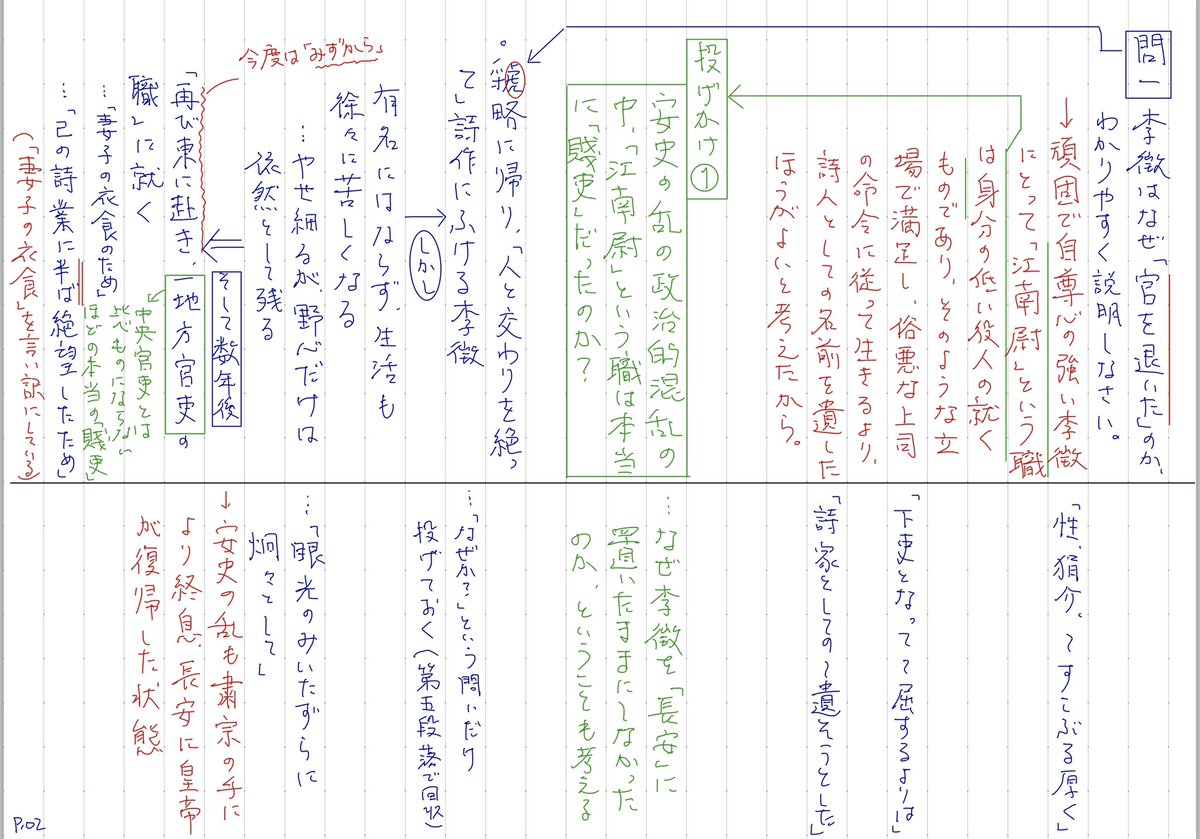 問一
李徴はなぜ「官を退いた」のか、
わかりやすく説明しなさい。
→頑固で自尊心の強い李徴
にとって「江南尉」という職
は身分の低い役人の就く
ものであり、そのような立
場で満足し、俗悪な上司
の命令に従って生きるより、
詩人としての名前を遺した
ほうがよいと考えたから。
投げかけ①
安史の乱の政治的混乱の
中、「江南尉」という職は本当
に「賤吏」だったのか？
・虢略に帰り、「人と交わりを絶っ
て」詩作にふける李徴
しかし
有名にはならず、生活も
徐々に苦しくなる
…やせ細るが、野心だけは
依然として残る
そして数年後
今度は「みずから」
「再び東に赴き、一地方官吏の
職」に就く
中央官吏とは
比べものにならない
ほどの本当の「賤吏」
…「妻子の衣食のため」
…「己の詩業に半ば絶望したため」
（「妻子の衣食」を言い訳にしている）
「性、狷介、〜すこぶる厚く」
「下吏となって〜屈するよりは」
「詩家としての〜遺そうとした」
…なぜ李徴を「長安」に
置いたままにしなかった
のか、ということも考える
…「なぜか？」という問いだけ
投げておく（第五段落で回収）
…「眼光のみいたずらに
炯々として」
→安史の乱も粛宗の手に
より終息、長安に皇帝
が復帰した状態
P.02